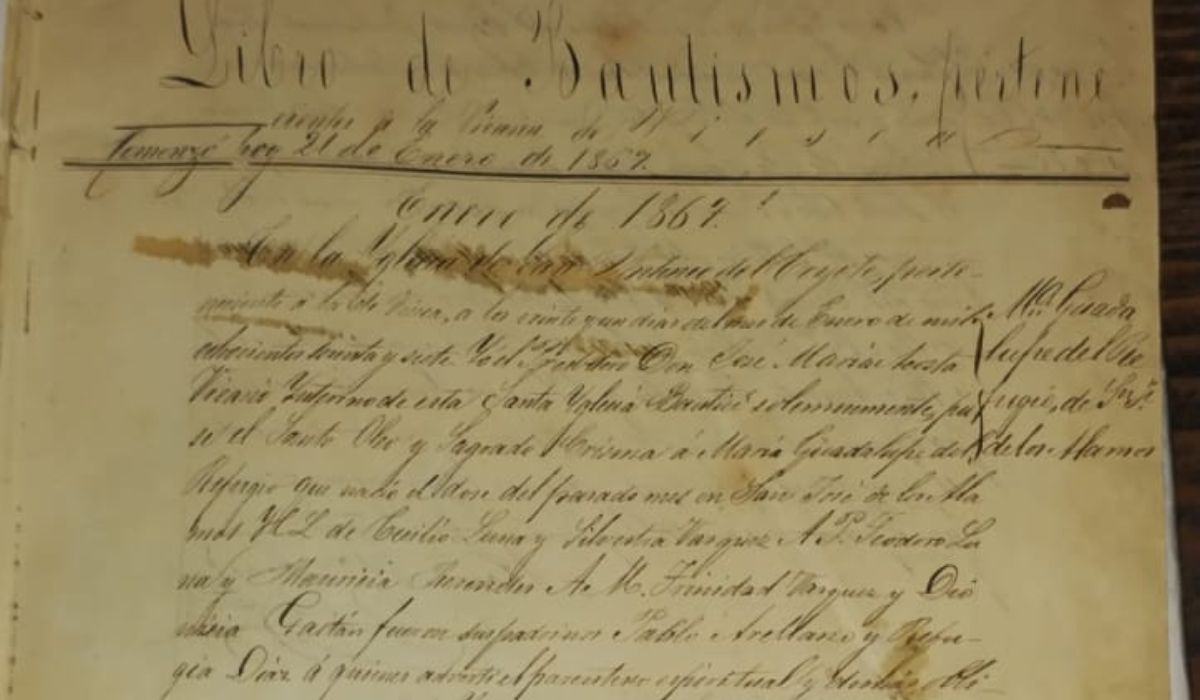 Libro de Bautismos, pertene
cientes á la Vicaria de
Comenzó hoy 21 de Enero de 1867.
Enero de 1867.
En la Yglesia de San Antonio del Coyote, perte-
neciente á la de Viesca, á los veinte y un dias del mes de Enero de mil
ochocientos sesenta y siete Yo el Presbitero Don José Maria Acosta
Vicario Interino de esta Santa Yglesia Bauticé solemnemente, pu
se el Santo Oleo y Sagrado Crisma á Maria Guadalupe del
Refugio que nació el doce del pasado mes en San José de los Ala
mos H. L. de Cecilio Luna y Silvestra Vasquez A. P. Teodoro Lu
na y Mauricia A. M. Trinidad Vasquez y Dio
nisia Gaitán fueron sus padrinos Pablo Arellano y Refu-
gia Diaz á quienes advertí el parentesco espiritual y demás obli
Ma. Guada
lupe del Re
fugio, de Sn. José
de los Alamos